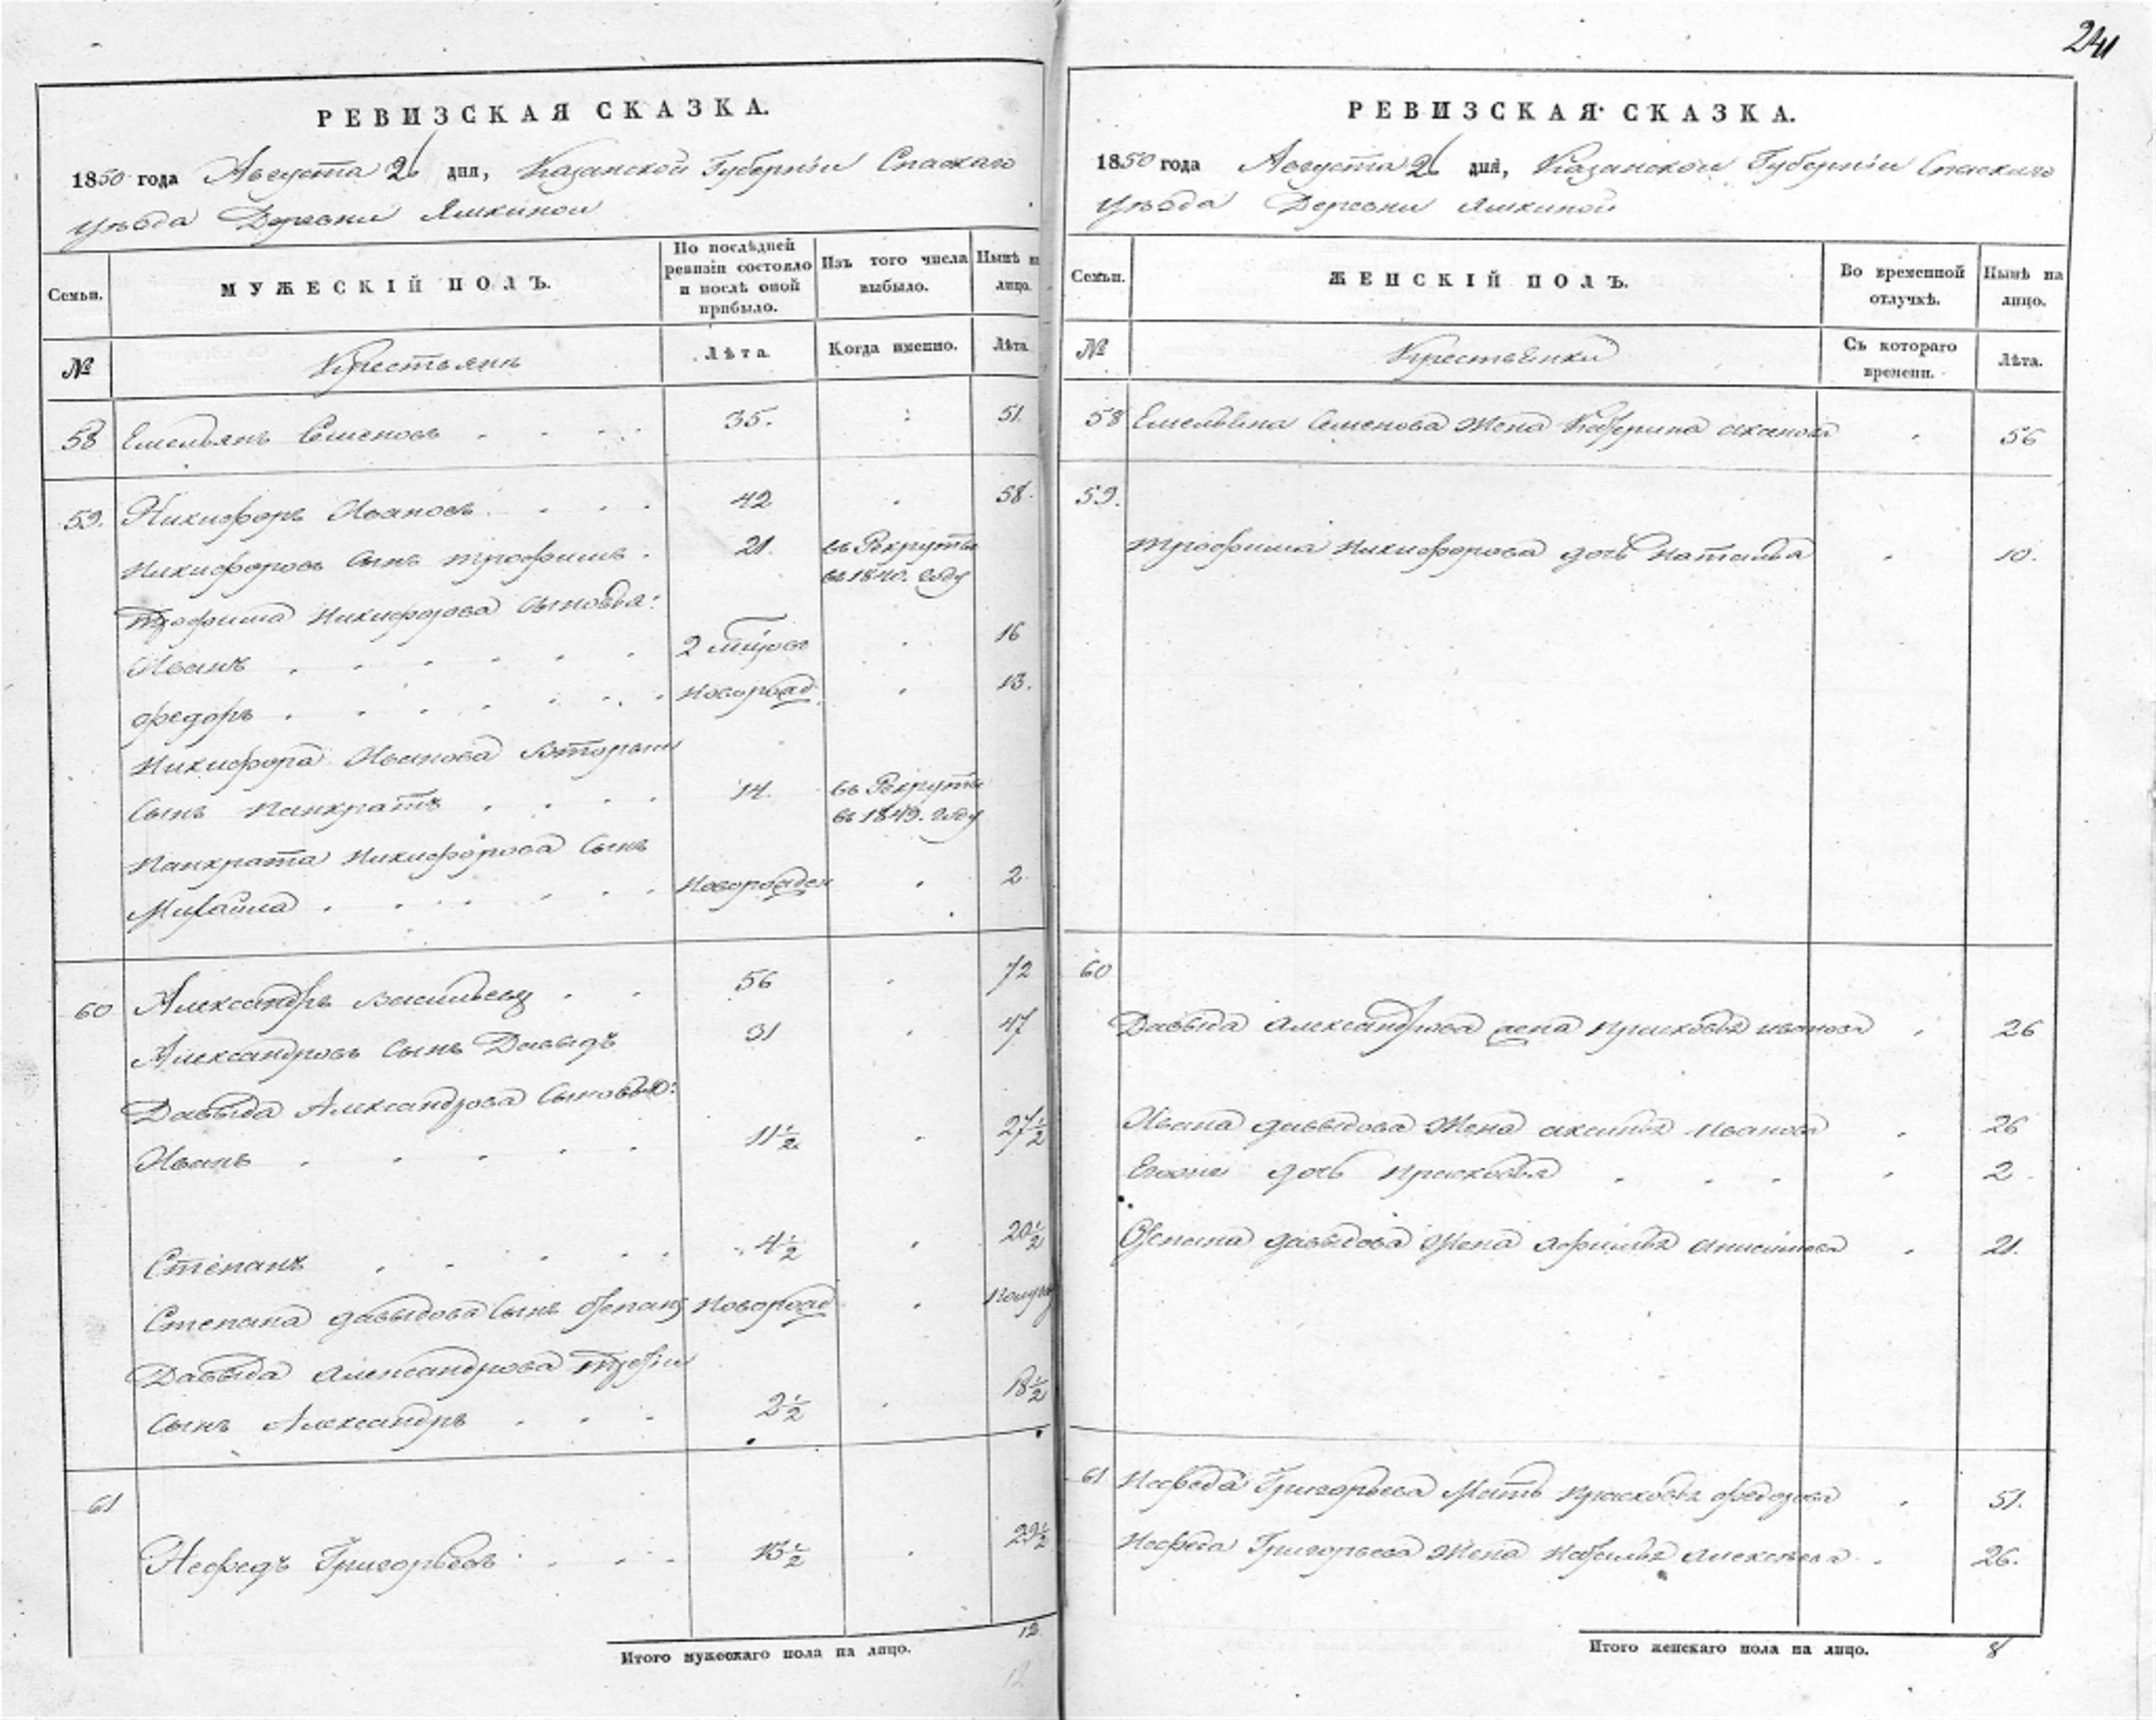 241
РЕВИЗСКАЯ СКАЗКА.
1850 года Августа 26 дня, Казанской Губерніи Спаскаго
уѣзда Деревни Яшкиной
Семьи.
МУЖЕСКІЙ ПОЛЪ.
По послѣдней ревизіи состояло и послѣ оной прибыло.
Изъ того числа выбыло.
Нынѣ на лицо.
№
Крестьянъ
Лѣта.
Когда именно.
Лѣта.
58 Емельянъ Семеновъ 35. 51.
59. Никифоръ Ивановъ 42 58.
Никифоровъ Сынъ Трофимъ. 21. въ Рекруты
въ 1840. году
Трофима Никифорова Сыновья:
Иванъ 2 16
Федоръ Новорожд. 13.
Никифора Иванова Вторый
Сынъ Панкратъ 14. въ Рекруты
въ 1849. году
Панкрата Никифорова Сынъ
Михайла Новорожден 2
60 Александръ Васильевъ 56 72
Александровъ Сынъ Давыдъ 31 47
Давыда Александрова Сыновья:
Иванъ 11½ 27½
Степанъ 4½ 20½
Степана Давыдова Сынъ Степанъ Новорожд
Давыда Александрова Третій
Сынъ Александръ 2½ 18½
61
Нефедъ Григорьевъ 13½ 29½
Итого мужескаго пола на лицо. 12
12
РЕВИЗСКАЯ СКАЗКА.
1850 года Августа 26 дня, Казанской Губерніи Спаскаго
уѣзда Деревни Яшкиной
Семьи.
ЖЕНСКІЙ ПОЛЪ.
Во временной отлучкѣ.
Нынѣ на лицо.
№
Крестьянки
Съ котораго времени.
Лѣта.
58 Емельяна Семенова Жена Катерина 56
59.
Трофима Никифорова дочь Наталья 10.
60
Давыда Александрова жена Прасковья Иванова 26
Ивана Давыдова Жена Аксинья Иванова 26
дочь Прасковья 2
Степана Давыдова Жена 21.
61 Нефеда Григорьева Мать Прасковья Федорова 51.
Нефеда Григорьева Жена Алексѣева 26.
Итого женскаго пола на лицо. 8